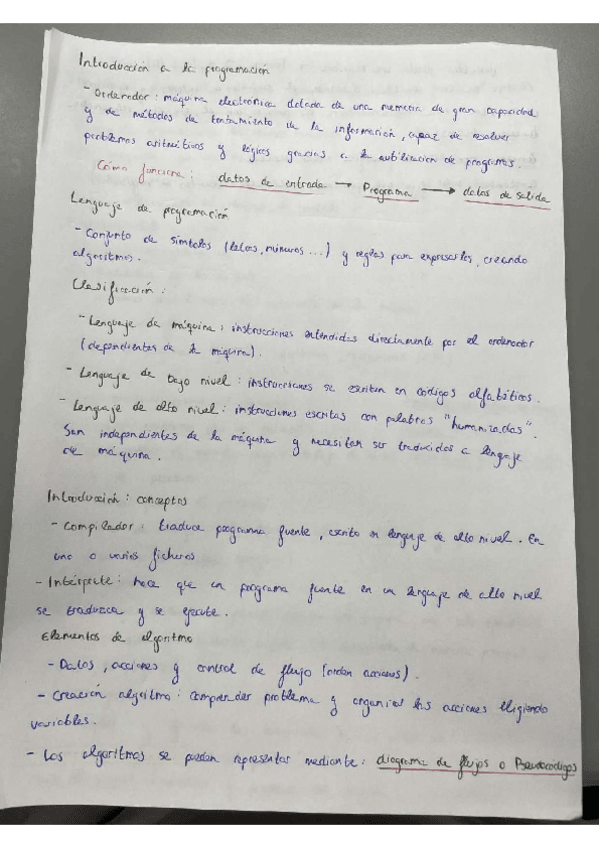 Introducción a la programación
- Ordenador : máquina electrónica dotada de una memoria de gran capacidad
y de métodos de tratamiento de la información, capaz de resolver
problemas aritméticos y lógicos gracias a la autilización de programas.
Cómo funciona : datos de entrada → Programa → datos de salida
Lenguaje de programación
- Conjunto de símbolos (letras, números ...) y reglas para expresarlos, creando
algoritmos.
Clasificación :
- Lenguaje de máquina : instrucciones entendidas directamente por el ordenador
(dependientes de la máquina).
- Lenguaje de bajo nivel : instrucciones se escriben en códigos alfabéticos.
- Lenguaje de alto nivel : instrucciones escritas con palabras "humanizadas".
Son independientes de la máquina y necesitan ser traducidos a lenguaje
de máquina.
Introducción : conceptos
- Compilador : traduce programa fuente, escrito en lenguaje de alto nivel. En
uno o varios ficheros
- Intérprete : hace que un programa fuente en un lenguaje de alto nivel
se traduzca y se ejecute.
Elementos de algoritmo
- Datos, acciones y control de flujo (orden acciones).
- Creación algoritmo : comprender problema y organizar las acciones eligiendo
variables.
- Los algoritmos se pueden representar mediante : diagrama de flujos o Pseudocódigos